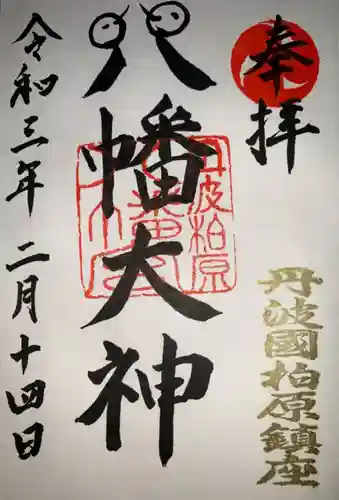 奉拝
丹波國柏原鎮座
八幡大神
丹波柏原
令和三年二月十四日